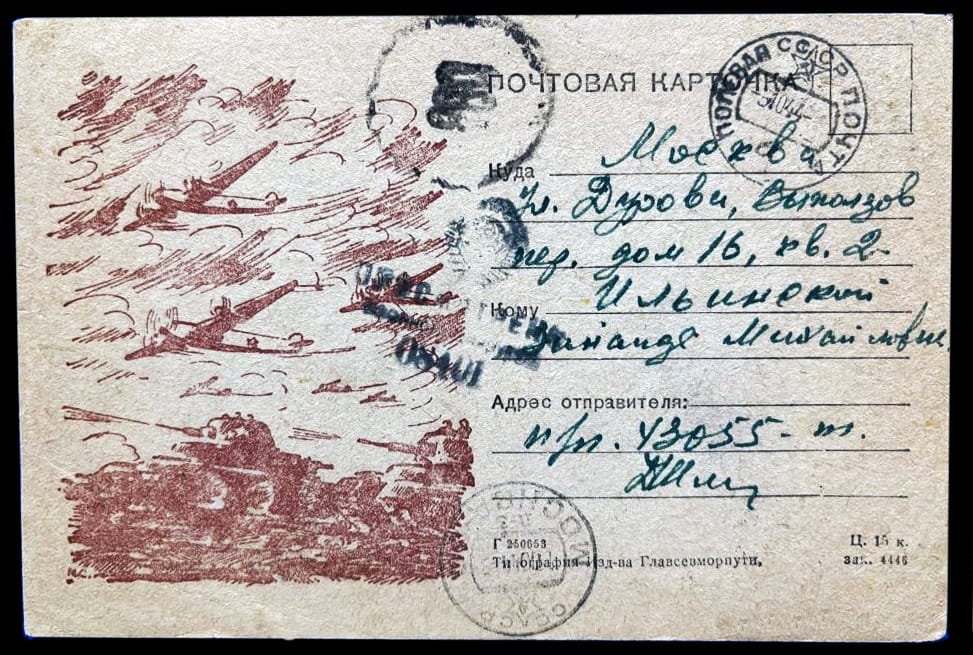 ПОЧТОВАЯ КАРТОЧКА
ПОЛЕВАЯ ПОЧТА
СССР
Куда Москва
Ул. Дурова, Выползов
пер. дом 16, кв. 2
Кому Ильинской
Зинаиде Михайловне
Адрес отправителя:
п/п. 43055-т.
МОСКВА
СССР
Г 250653
Типография Изд-ва Главсевморпути,
Ц. 15 к.
зак. 4446